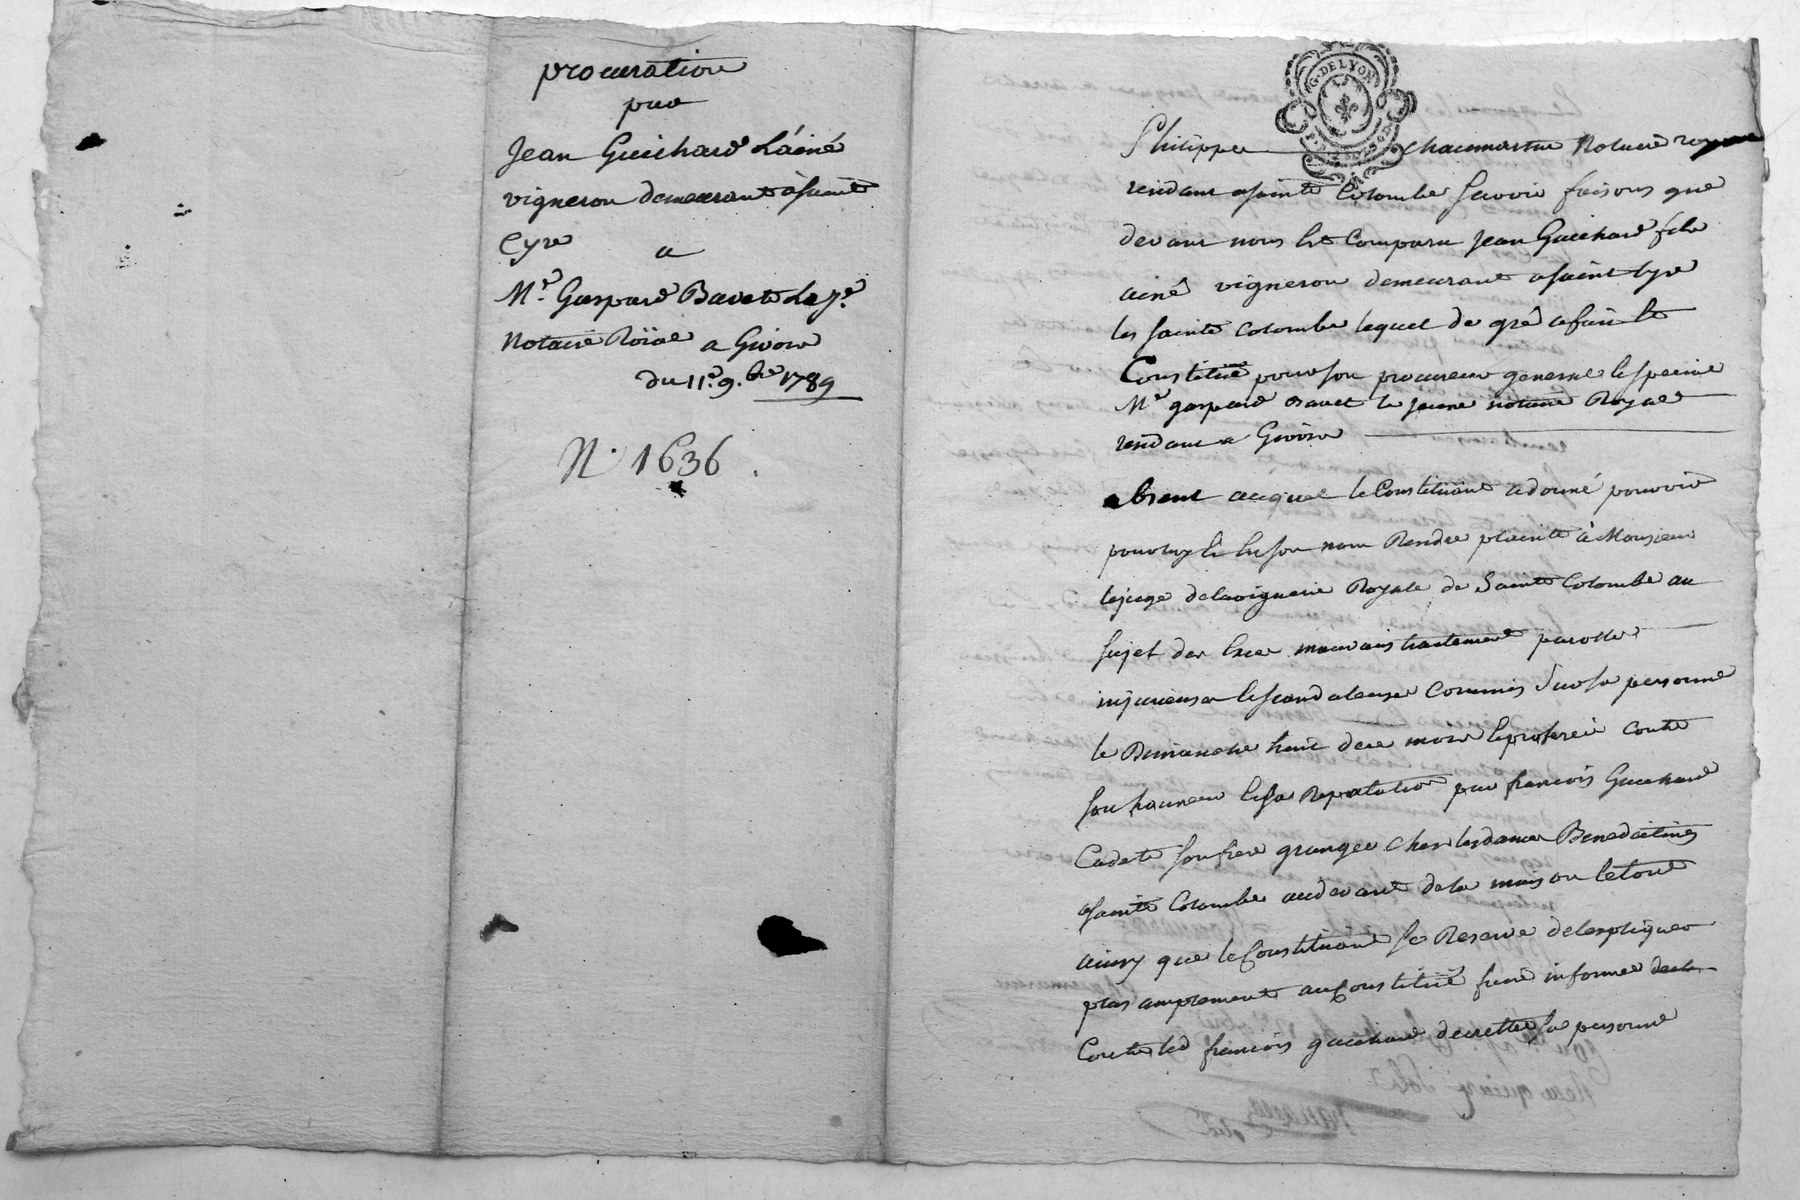 procuration
par
Jean Guichard L'áiné
vigneron demeurant à Saint
Cyre a
Mr. Gaspard Bavet Le je.
Notaire Roïal a Givors
du 11e 9.bre 1789
N. 1636
G. DE LYON
Philippe Chacemartin Notaire royal
resident a Sainte Colombe Savoir faisons que
devant nous Est Comparu Jean Guichard fils
ainé vigneron demeurant a Saint Cyre
les Sainte Colombe lequel de gré a fait Et
Constitué pour Son procureur general Especial
Me gaspard Bavet le jeune notaire Royal
resident a Givors
absent auquel le Constituant a donné pouvoir
pour luy Et En Son nom Rendre plainte à Monsieur
le juge de la viguerie Royale de Sainte Colombe au
Sujet des Exce mauvais traitement parolles
injurieuses Escandaleuses Commis Sur Sa personne
le Dimanche huit de ce mois Et proferé Contre
Son honneur Et Sa Reputation par françois Guichard
Cadet Son frere granger Chez les dames Benedictines
a Sainte Colombe au devant de la maison Le tout
ainsy que le Constituant Se Reserve de lexpliquer
plus amplement au Constitué faire informer
Contre led françois guichard decretter Sa personne